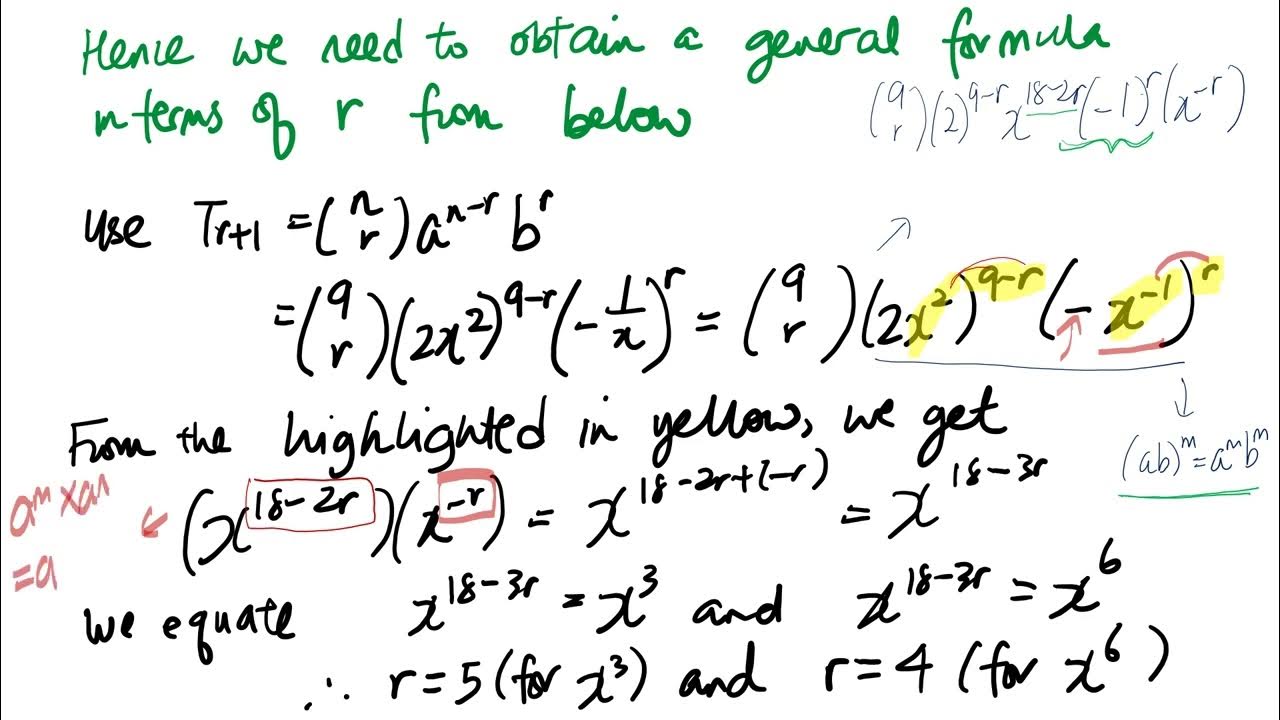 Hence we need to obtain a general formula
in terms of r from below
(9 r)(2)^{9-r} x^{18-2r} (-1)^r (x^{-r})
use T_{r+1} = (n r) a^{n-r} b^r
= (9 r)(2x^2)^{9-r} (-1/x)^r = (9 r)(2x^2)^{9-r} (-x^{-1})^r
From the highlighted in yellow, we get
(ab)^m = a^m b^m
a^m × a^n
= a
(x^{18-2r})(x^{-r}) = x^{18-2r+(-r)} = x^{18-3r}
we equate x^{18-3r} = x^3 and x^{18-3r} = x^6
∴ r = 5 (for x^3) and r = 4 (for x^6)